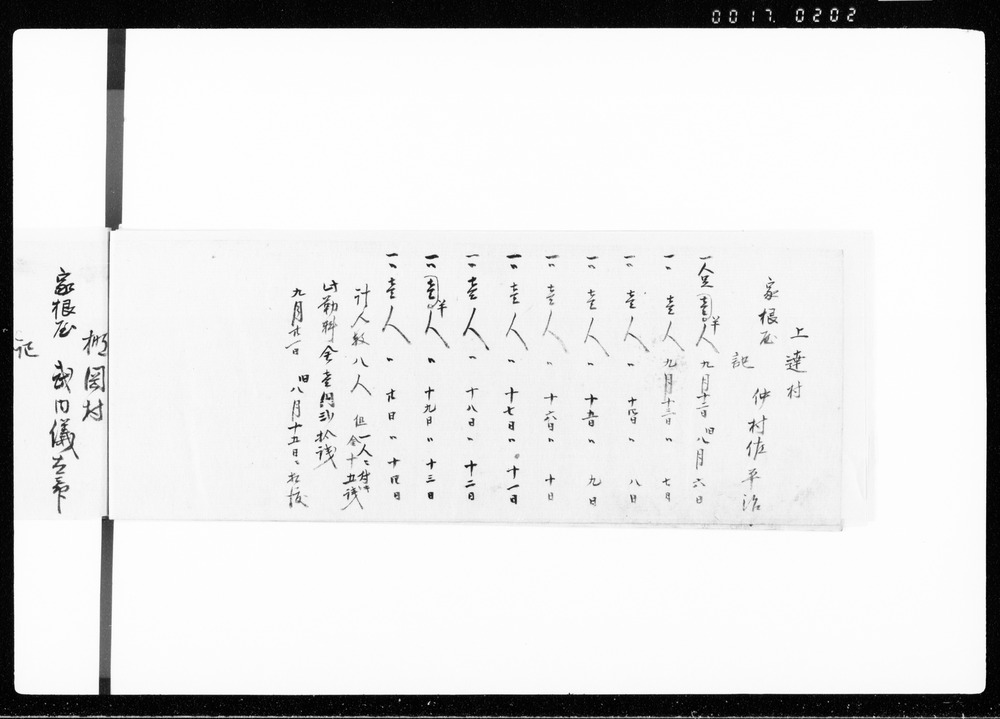 0017 0202
上達村
家根屋 仲村佐平治
記
一人足壱半人 九月十二日 旧八月六日
一〃壱人 九月十三日〃 七日
一〃壱人 〃 十四日 八日
一〃壱人 〃 十五日〃 九日
一〃壱人 〃 十六日〃 十日
一〃壱人 〃 十七日〃 十一日
一〃壱人 〃 十八日〃 十二日
一〃半人 〃 十九日〃 十三日
一〃壱人 〃 廿日〃 十四日
計人数八人 但一人ニ付金十五銭
此勤料金壱円弐拾銭
九月廿一日 旧八月十五日ニ相渡
棚岡村
家根屋 武内儀左衛
記